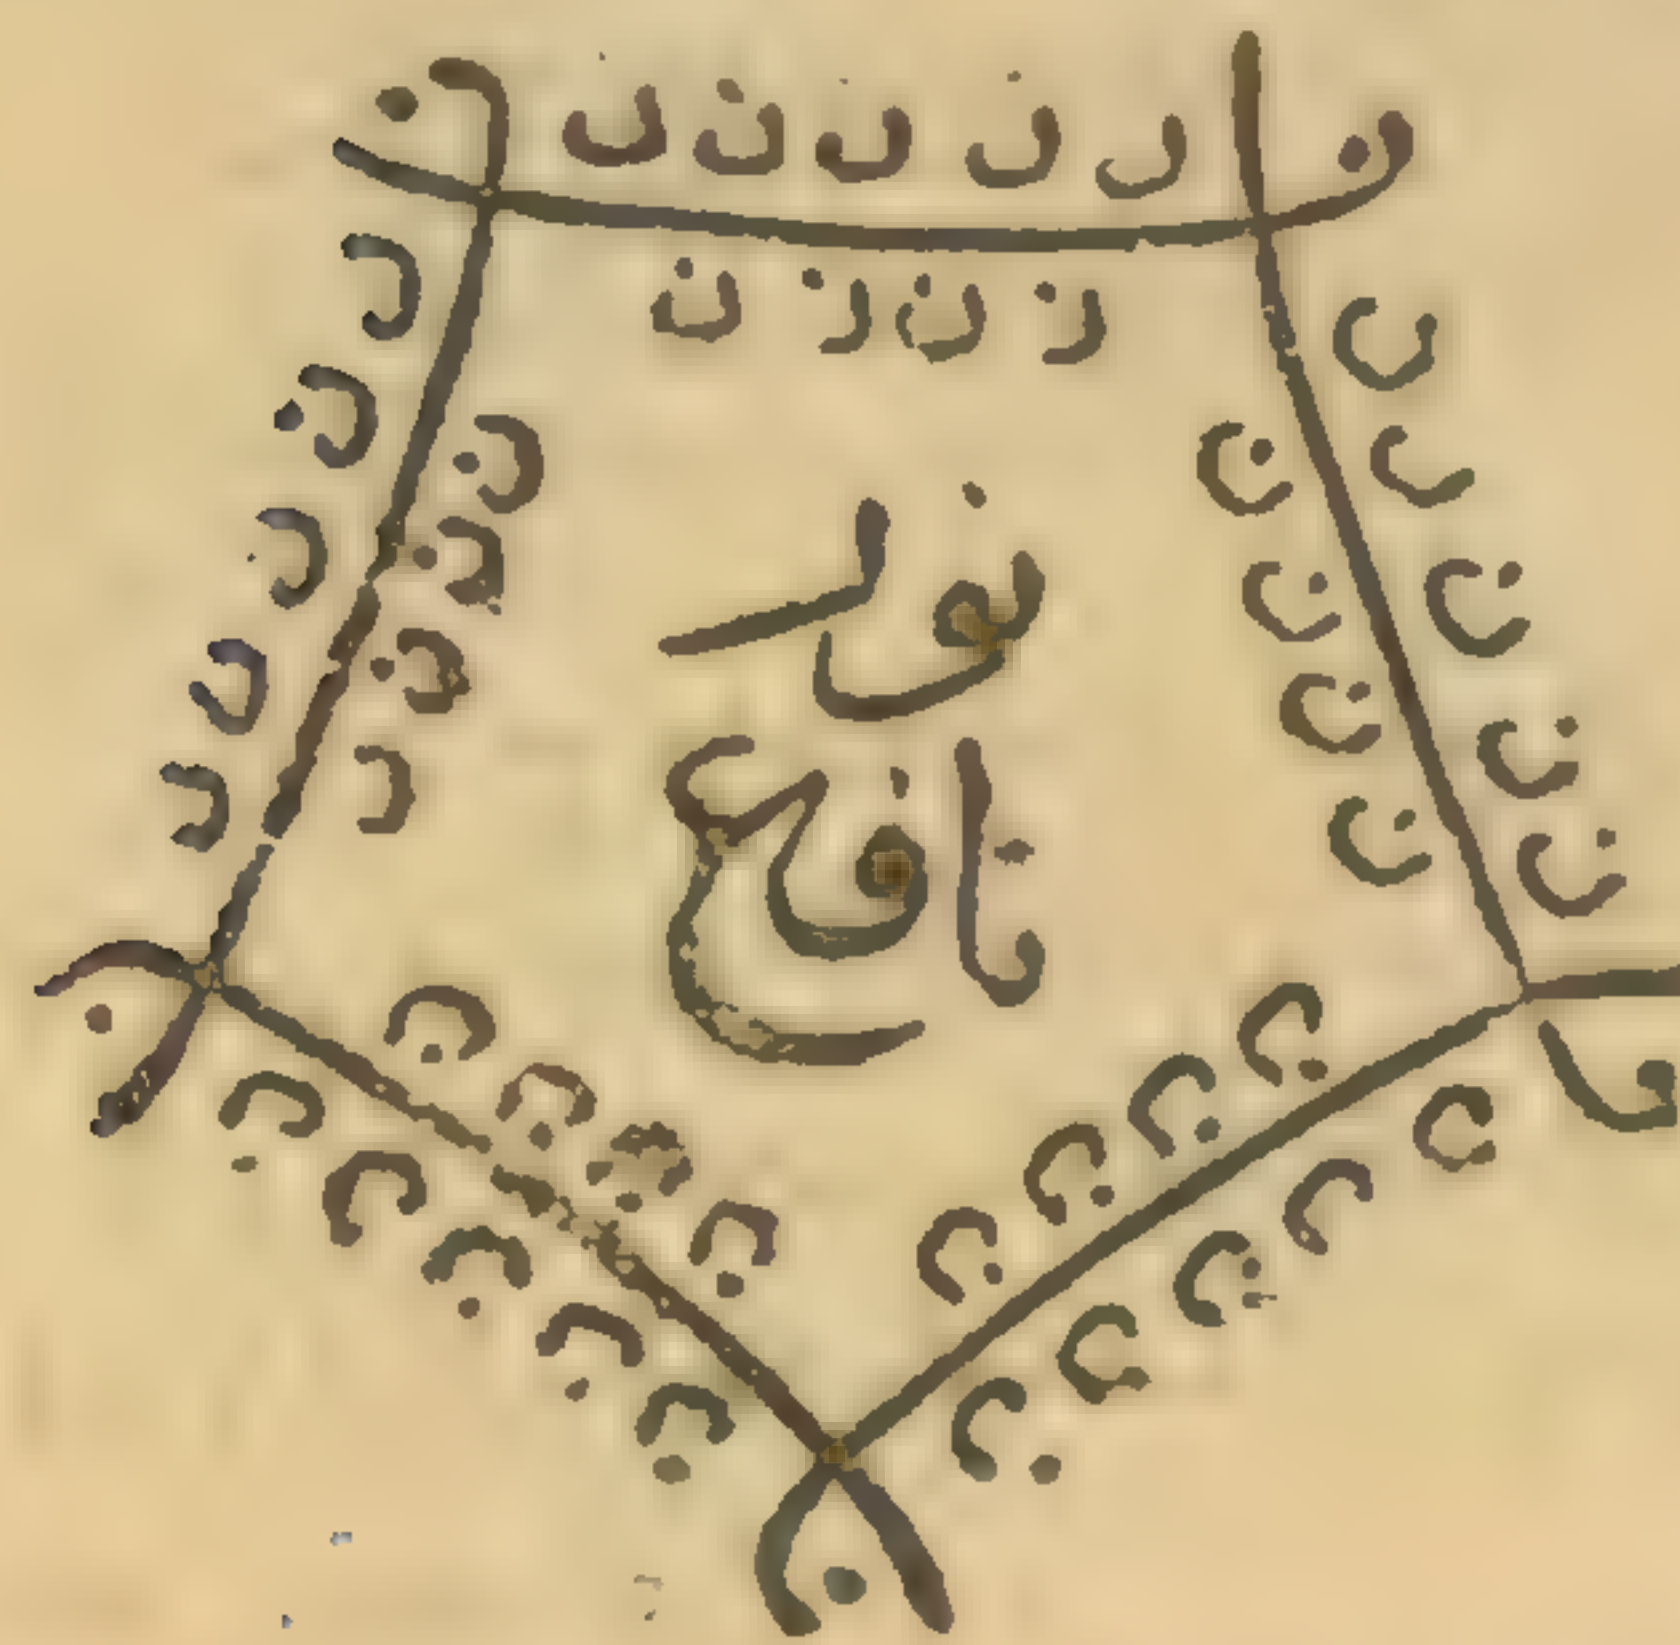 ن ن ن ن ن
ن ن ن ن
نور
نافع
ن ن ن ن ن
ن ن ن ن
ن ن ن ن ن
ن ن ن ن
ن ن ن ن ن
ن ن ن ن
ن ن ن ن ن
ن ن ن ن